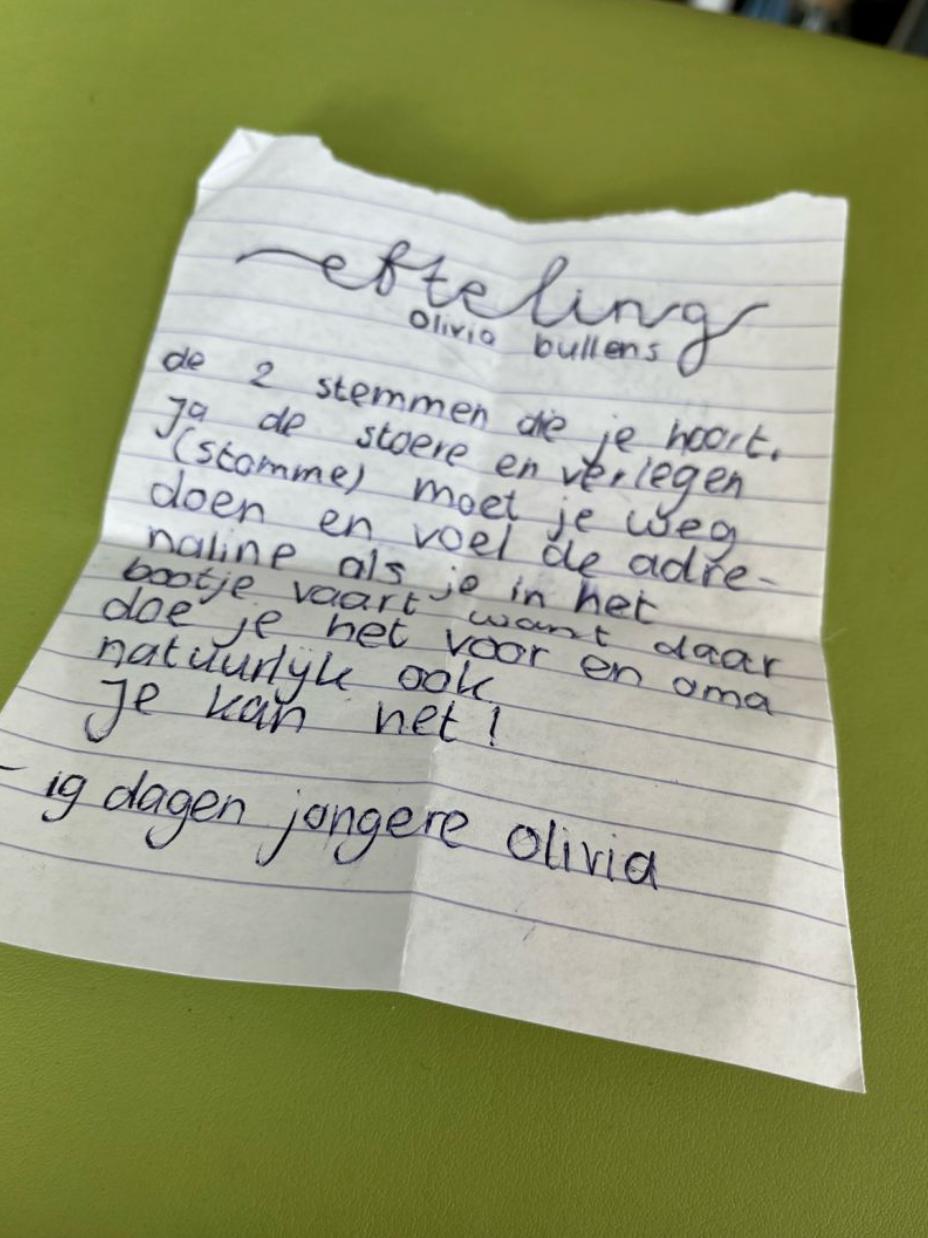 efteling
olivia bullens
de 2 stemmen die je hoort.
Ja de stoere en verlegen
(stomme) moet je weg
doen en voel de adre-
naline als je in het
bootje vaart want daar
doe je het voor en oma
natuurlijk ook
Je kan het!
- 19 dagen jongere Olivia